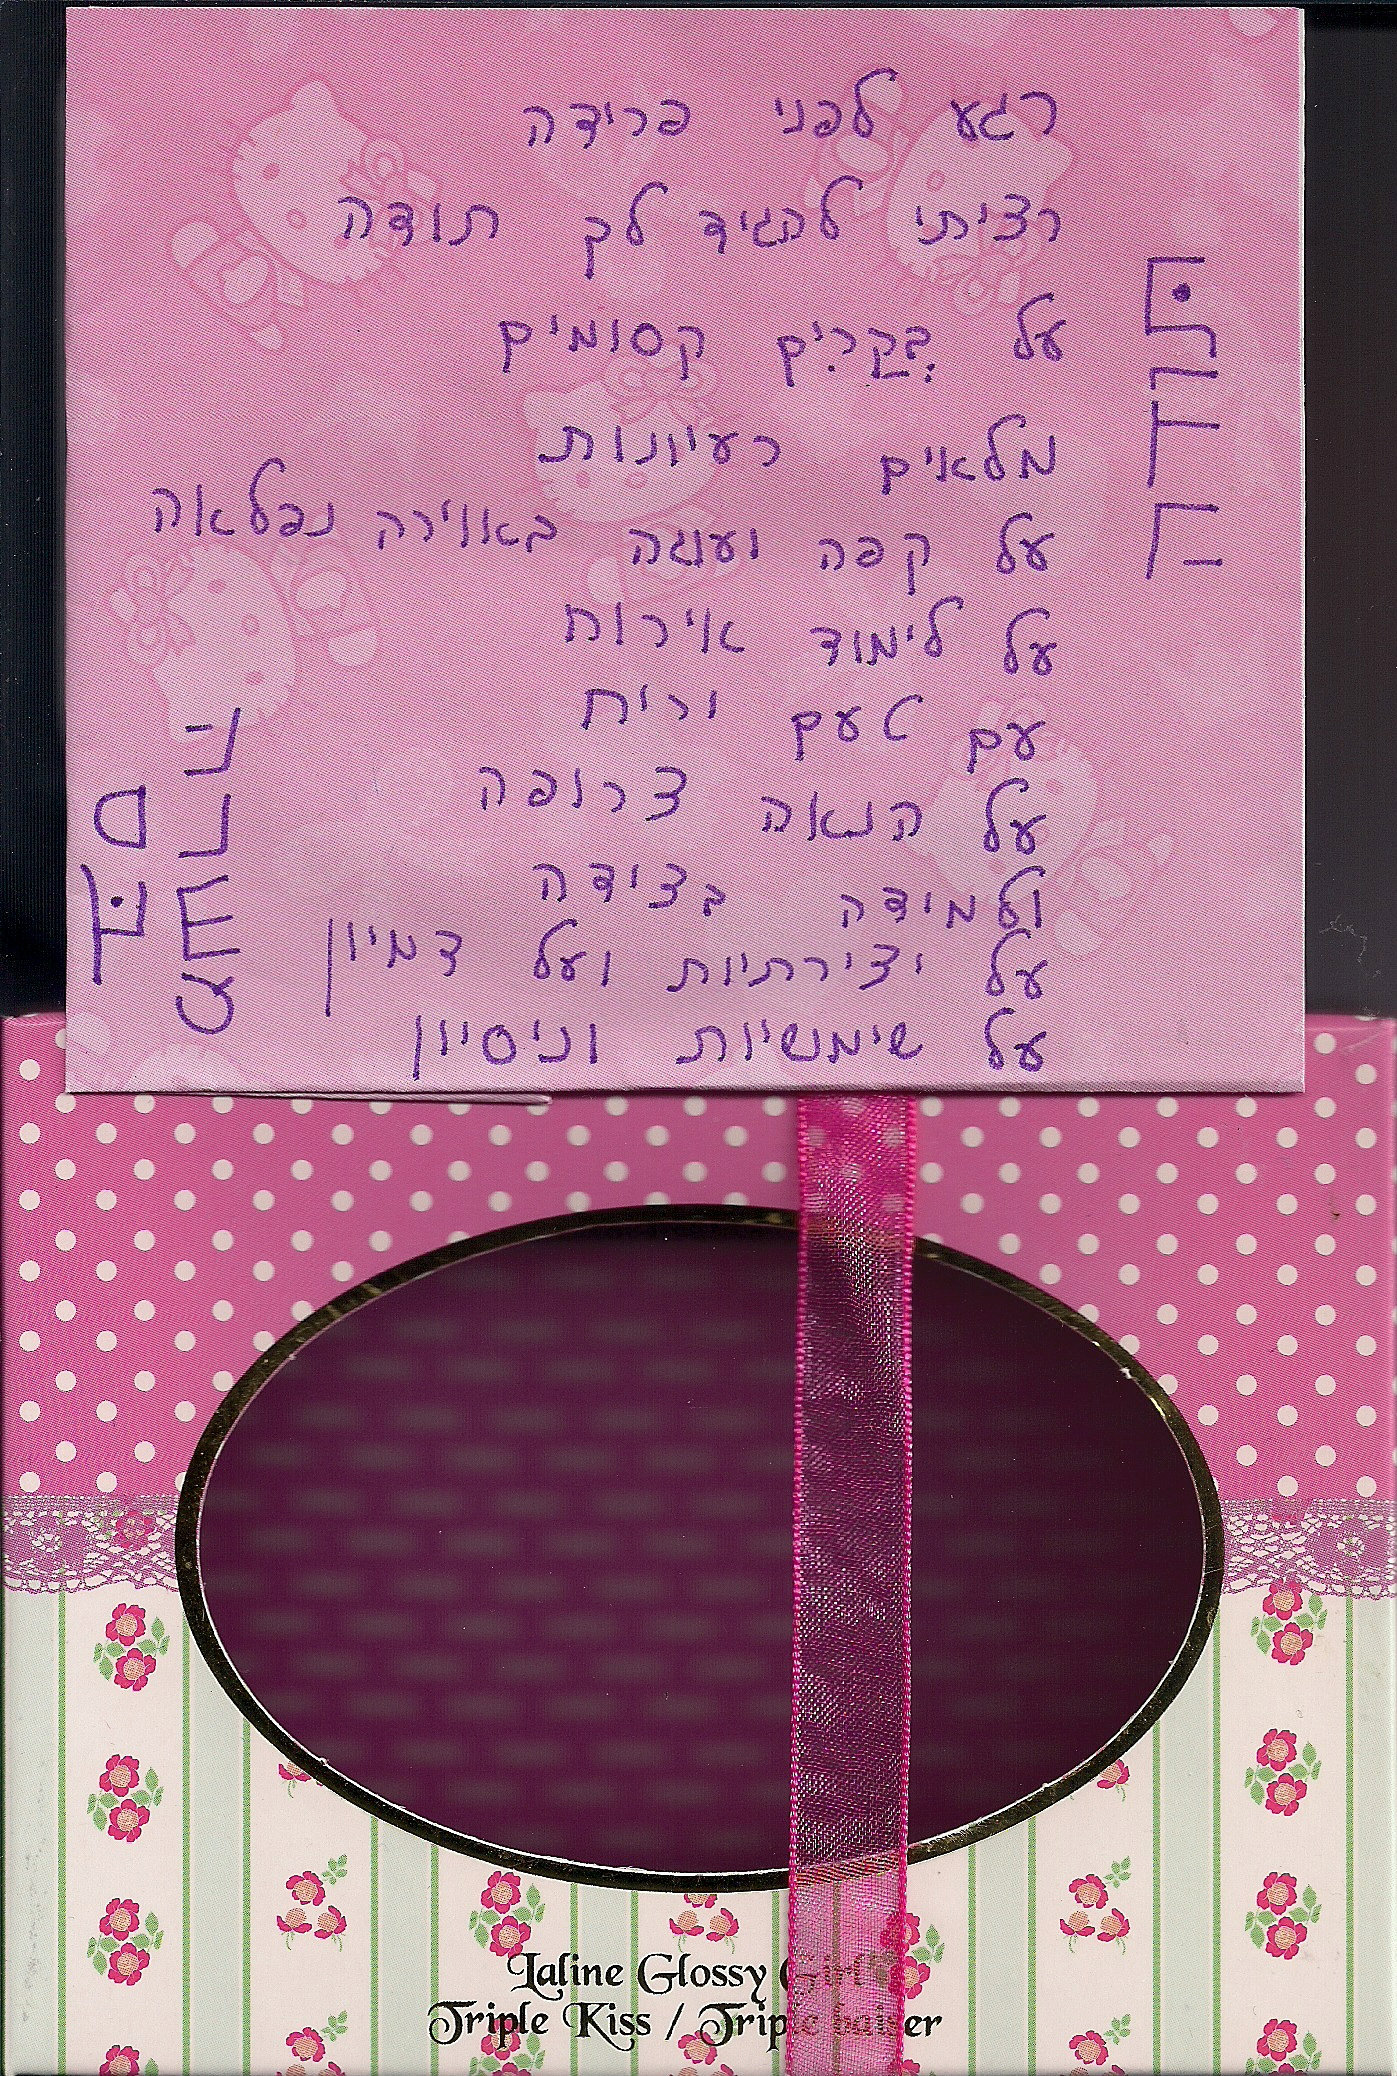 רגע לפני פרידה
רציתי להגיד לך תודה
על בְּקָרִים קסומים
מלאים רעיונות
על קפה ועוגה באווירה נפלאה
על לימוד אירוח
עם טעם וריח
על הנאה צרופה
ולמידה בצידה
על יצירתיות ועל דמיון
על שימושיות וניסיון
Laline Glossy Girl
Triple Kiss / Triple baiser